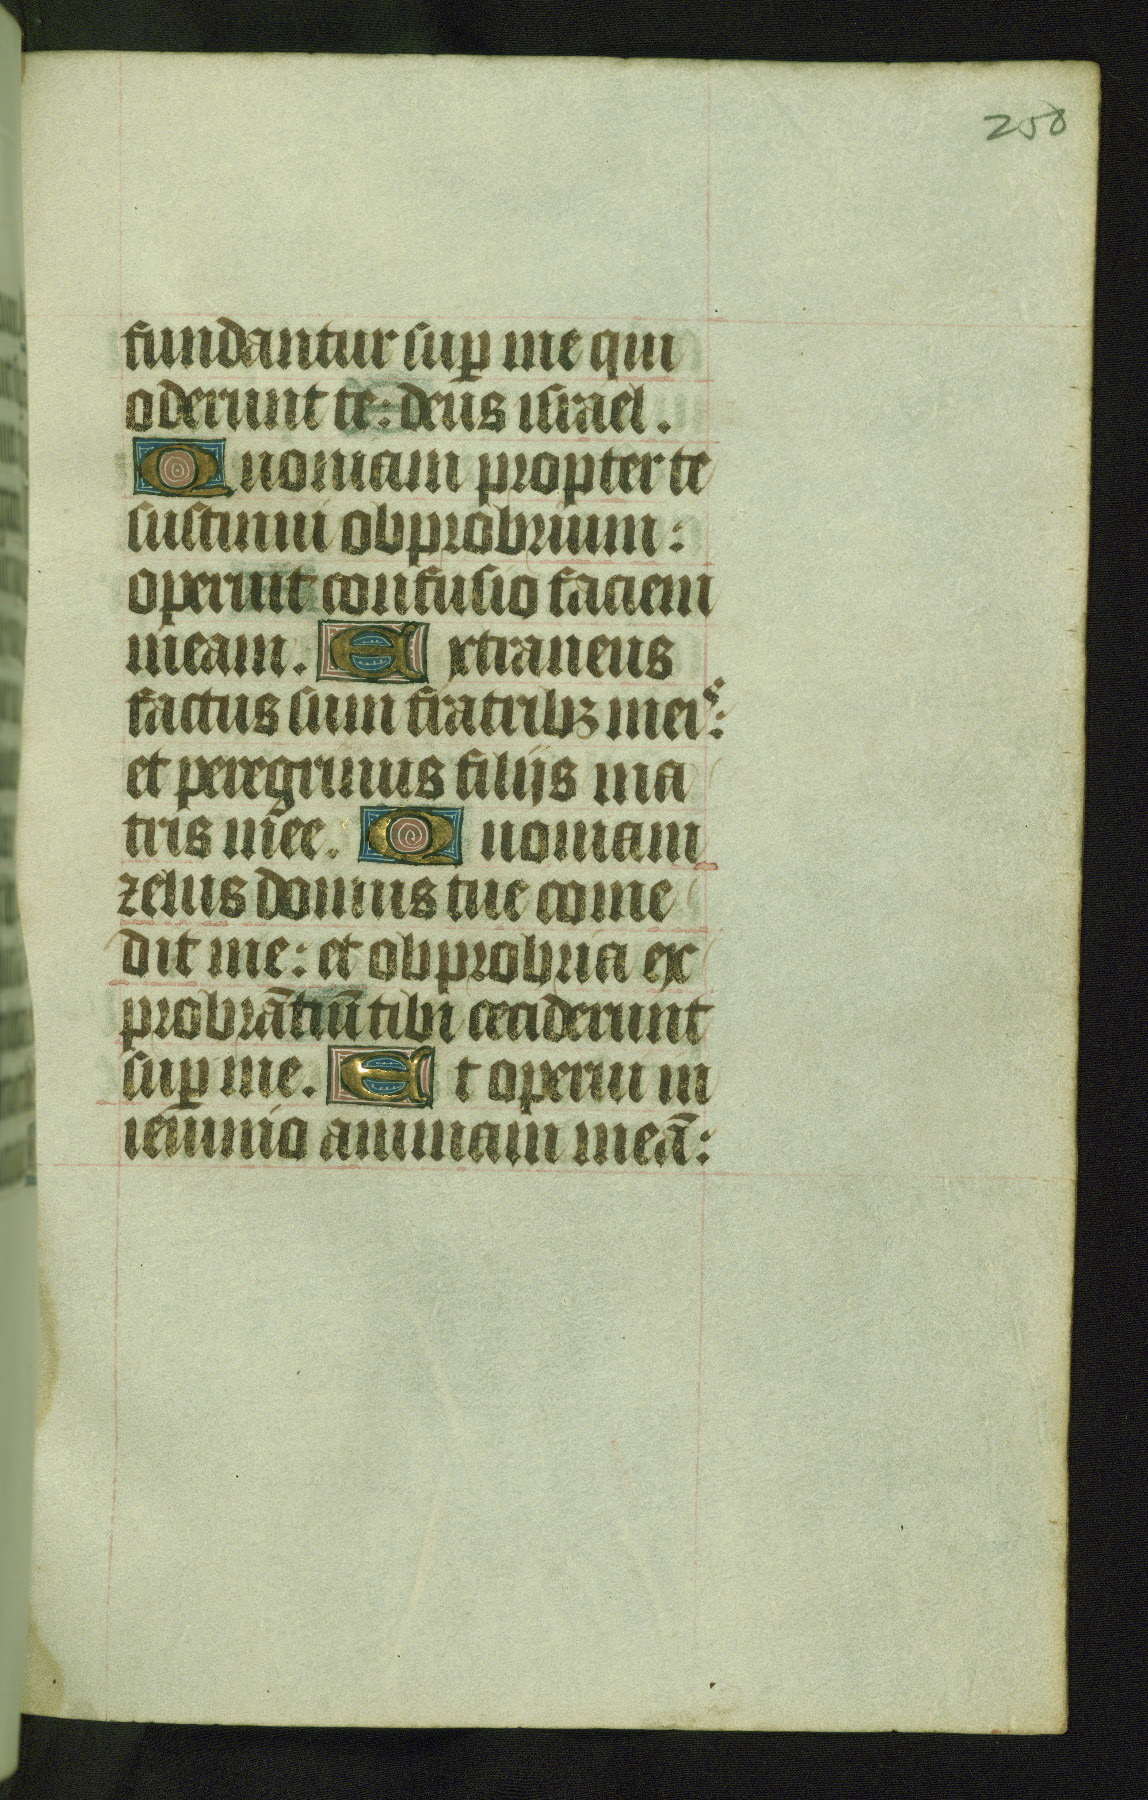 250
fundantur sup̱ me qui
oderunt te: deus israel.
Quoniam propter te
sustinui obprobrium:
operuit confusio faciem
meam. Extraneus
factus sum fratribꝫ meis:
et peregrinus filijs ma
tris mee. Quoniam
zelus domus tue come
dit me: et obprobria ex
probrātiū tibi ceciderunt
sup̱ me. Et operui in
ieiunio animam meā: